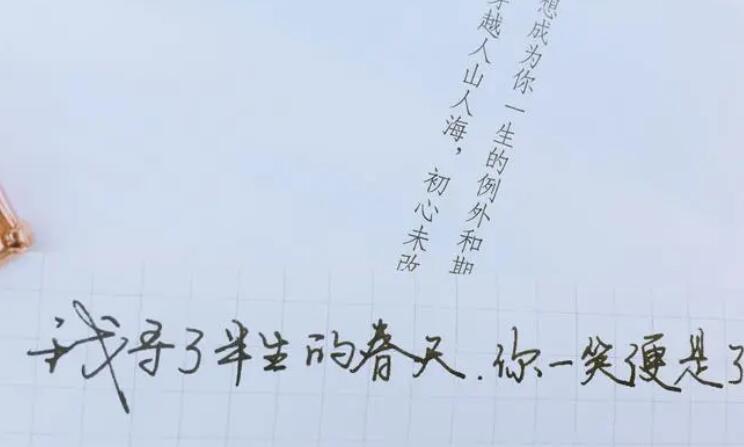 想成为你一生的例外和期
穿越人山人海，初心未改
我寻了半生的春天.你一笑便是了